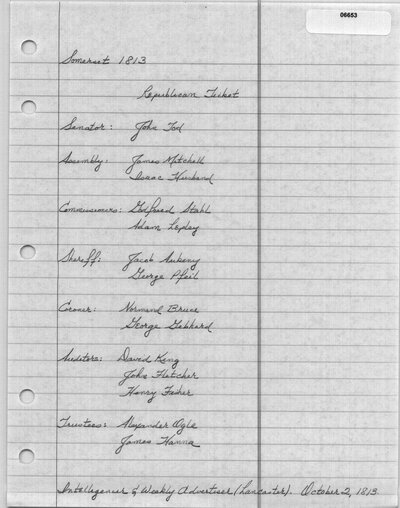 06653
Somerset 1813
Republican Ticket
Senator: John Tod
Assembly: James Mitchell
Isaac Husband
Commissioners: Godfried Stahl
Adam Lepley
Sheriff: Jacob Ankeny
George Pfeil
Coroner: Normand Bruce
George Gebhard
Auditors: David King
John Fletcher
Henry Fisher
Trustees: Alexander Ogle
James Hanna
Intelligencer & Weekly Advertiser (Lancaster). October 2, 1813.